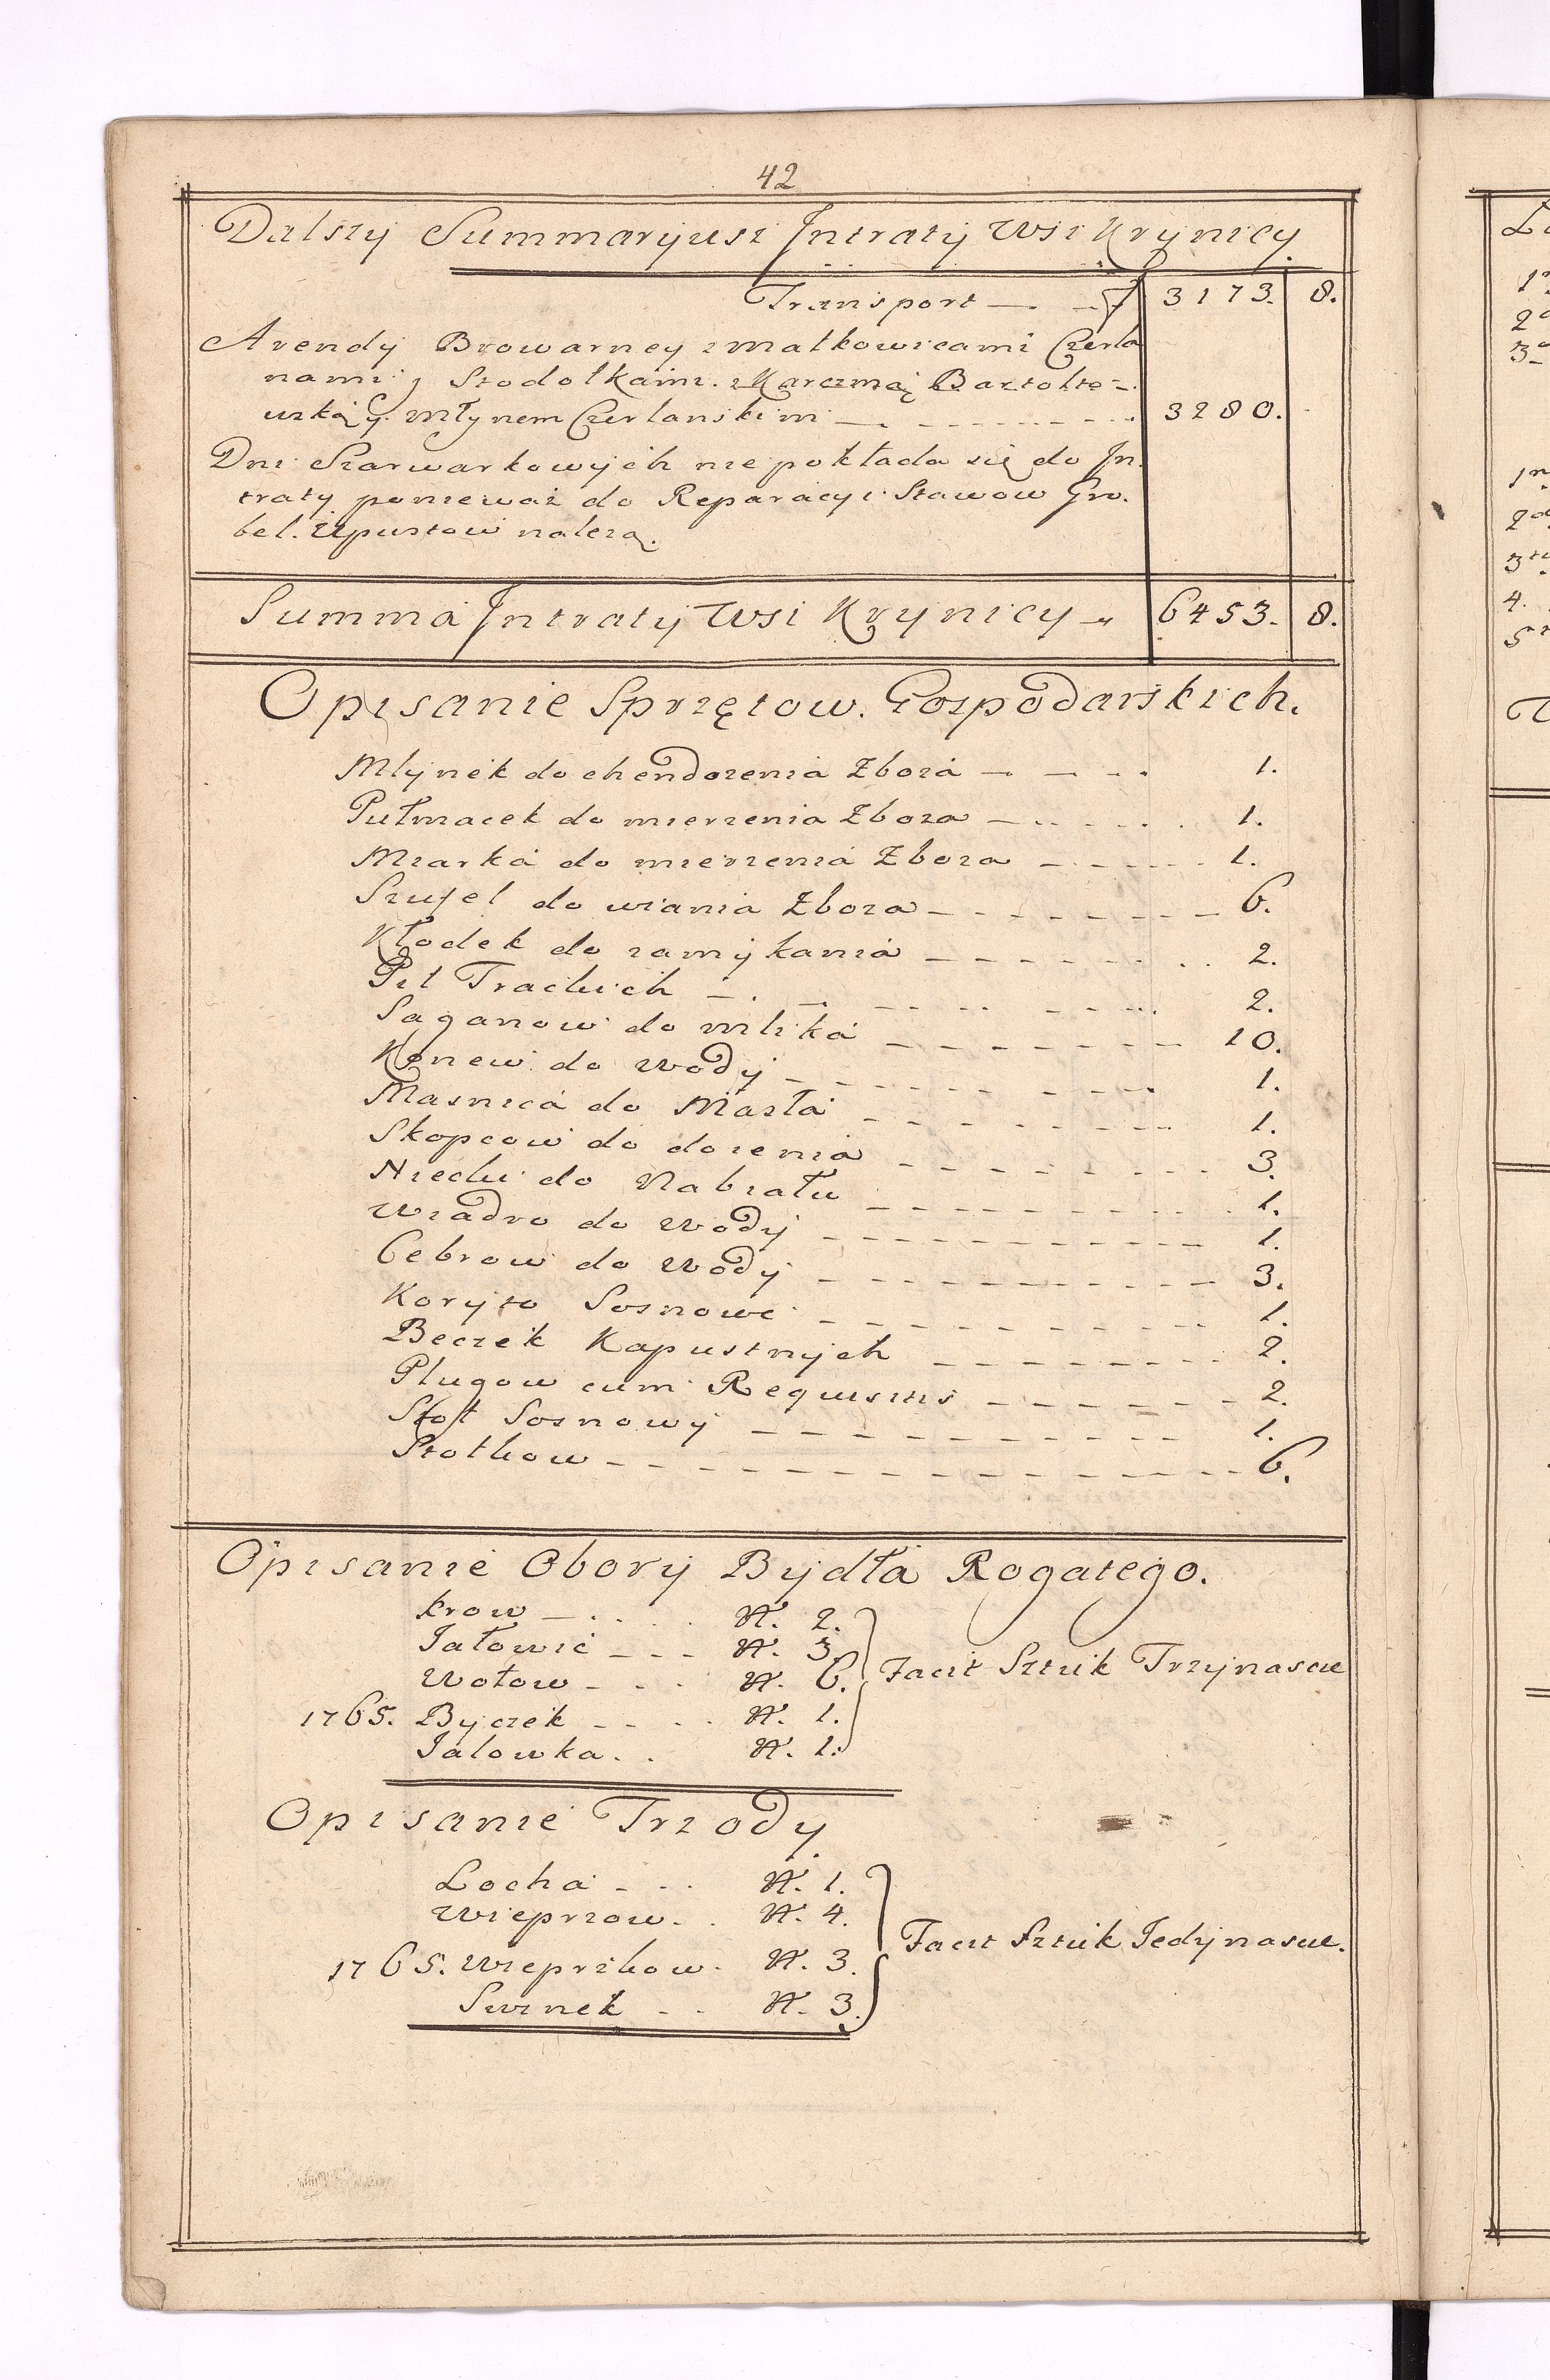 42
Dalszy Summaryusz Intraty Wsi Krynicy.
Transport — f 3173. 8.
Arendy Browarney z małkowicami Czerla
nami, y Stodolkami. z Karczmą Bartolto=
wską y młynem Czerlanskim — 3280.
Dni Szarwarkowych nie pokłada się do In.
traty poniewaz do Reparacyi Stawow Gro.
bel. Upustow nalezą.
Summa Intraty Wsi Krynicy 6453. 8.
Opisanie Sprzętow. Gospodarskich.
Mlynek do chendozenia Zboza — 1.
Pułmacek do mierzenia Zboza — 1.
Miarka do mierzenia Zboza — 1.
Szufel do wiania Zboza — 6.
Kłodek do zamykania — 2.
Pił Trackich — 2.
Saganow do mlika — 10.
Konew do wody — 1.
Masnica do Masła — 1.
Skopcow do dozenia — 3.
Niecki do Nabiału — 1.
Wiadro do Wody — 1.
Cebrow do Wody — 3.
Koryto Sosnowe — 1.
Beczek Kapustnych — 2.
Plugow cum Requisitis — 2.
Stoł Sosnowy — 1.
Stołkow — 6.
Opisanie Obory Bydła Rogatego.
Krow — N. 2.
Jałowic — N. 3.
Wołow — N. 6. Facit Sztuk Trzynascie
1765. Byczek — N. 1.
Jalowka. N. 1.
Opisanie Trzody
Locha — N. 1.
Wieprzow. N. 4.
Facit Sztuk Jedynascie.
1765. Wieprzkow. N. 3.
Swinek — N. 3.